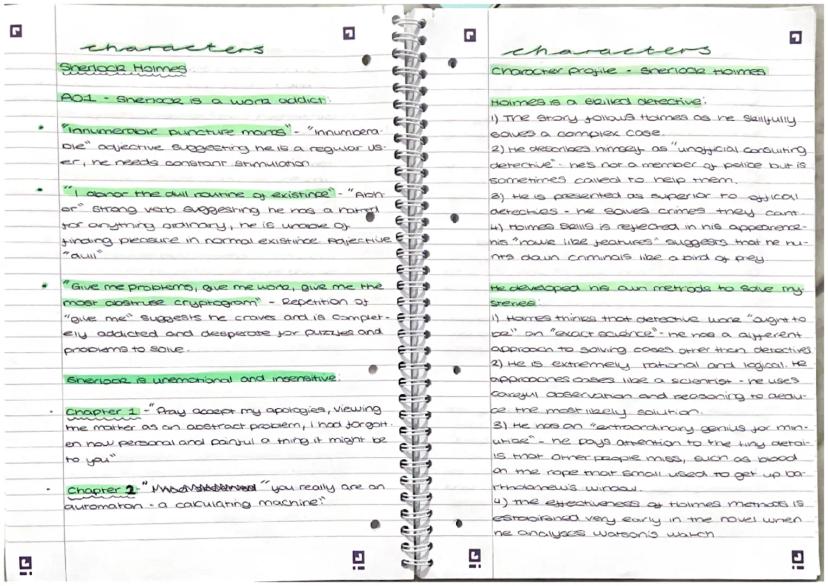 characters
Sherlock Holmes
AO1 - Sherlock is a work addict:
"Innumerable puncture marks" - "innumera-
ble" adjective suggesting he is a regular us-
er, he needs constant stimulation
"I abhor the dull routine of existence" - "Abh-
or" strong verb suggesting he has a hatred
for anything ordinary, he is unable of
finding pleasure in normal existence Adjective
"dull"
"Give me problems, give me work, give me the
most abstruse cryptogram" - Repetition of
"give me" suggests he craves and is complet-
ely addicted and desperate for puzzles and
problems to solve.
Sherlock is unemotional and insensitive:
Chapter 1 - "Pray accept my apologies, viewing
the matter as an abstract problem, I had forgott-
en how personal and painful a thing it might be
to you"
Chapter 2 - " "you really are an
automaton - a calculating machine"
characters
Character profile - Sherlock Holmes
Holmes is a skilled detective:
1) The story follows Holmes as he skilfully
solves a complex case.
2) He describes himself as "unofficial consulting
detective" - he's not a member of police but is
sometimes called to help them.
3) He is presented as superior to official
detectives - he solves crimes they cant.
4) Holmes skills is reflected in his appearence -
his "hawk like features" suggests that he hu-
nts down criminals like a bird of prey.
He developed his own methods to solve my-
steries:
1) Holmes thinks that detective work "ought to
be" an "exact science" - he has a different
approach to solving cases other than detectives
2) He is extremely rational and logical. He
approaches cases like a scientist - he uses
careful observation and reasoning to dedu-
ce the most likely solution.
3) He has an "extraordinary genius for min-
utiae" - he pays attention to the tiny detai-
ls that other people miss, such as blood
on the rope that small used to get up ba-
rtholomew's window.
4) The effectiveness of Holmes methods is
established very early in the novel when
he analyses Watson's watch